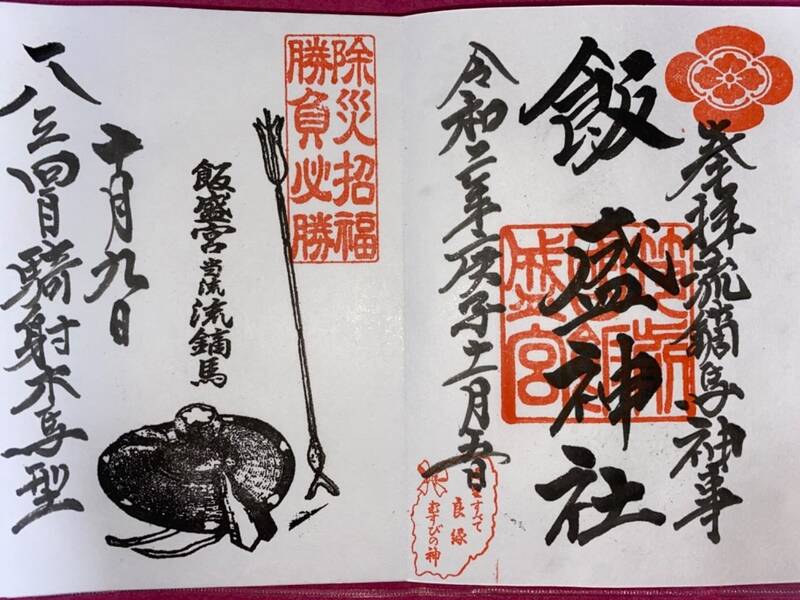 奉拝流鏑馬神事
飯盛神社
令和二年庚子
すべて
良縁
むすびの神
除災招福
勝負必勝
飯盛宮当流流鏑馬
十月九日
八三四騎射木馬型